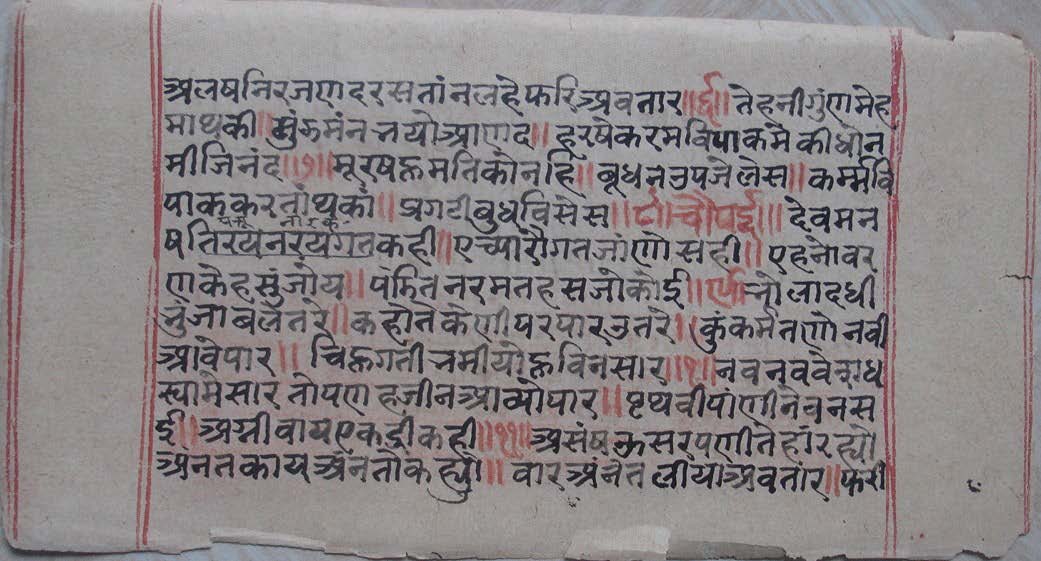 अलषनिरजणदरसतांनलहेफरिअवतार॥६॥तेहनीगुंणमेह
माथकी॥मुंऊमंनजयोआणद॥हरषेकरमविपाकमेकीधोन
मीजिनंद॥७॥मूरषकुमतिकोनहि॥बूधनउपजेलेस॥कर्म्मवि
पाककरतांथकां॥प्रगटीबुधविसेस॥८॥चौपई॥देवमन
षतिरयनरयगतकही॥एच्यारौगतजांणोसही॥एहनोवर
णकैहसुंजोय॥पंडितनरमतहसजोकोई॥९॥नोलादधी
नुंजाबलेतरे॥कहोतकेणीपरपारउतरे॥कुंकर्मतणोनवी
आवेपार॥चिहुगती
स्यामेसारतोपणहजीनआव्योपार॥पृथवीपांणीनेवनस
ई॥अग्नीवायएकद्रीकही॥११॥असंषउसरपणीतेहांरह्यो
अनतकायअनंतोकह्यो॥वारअनंतलीयाअवतार॥फरी